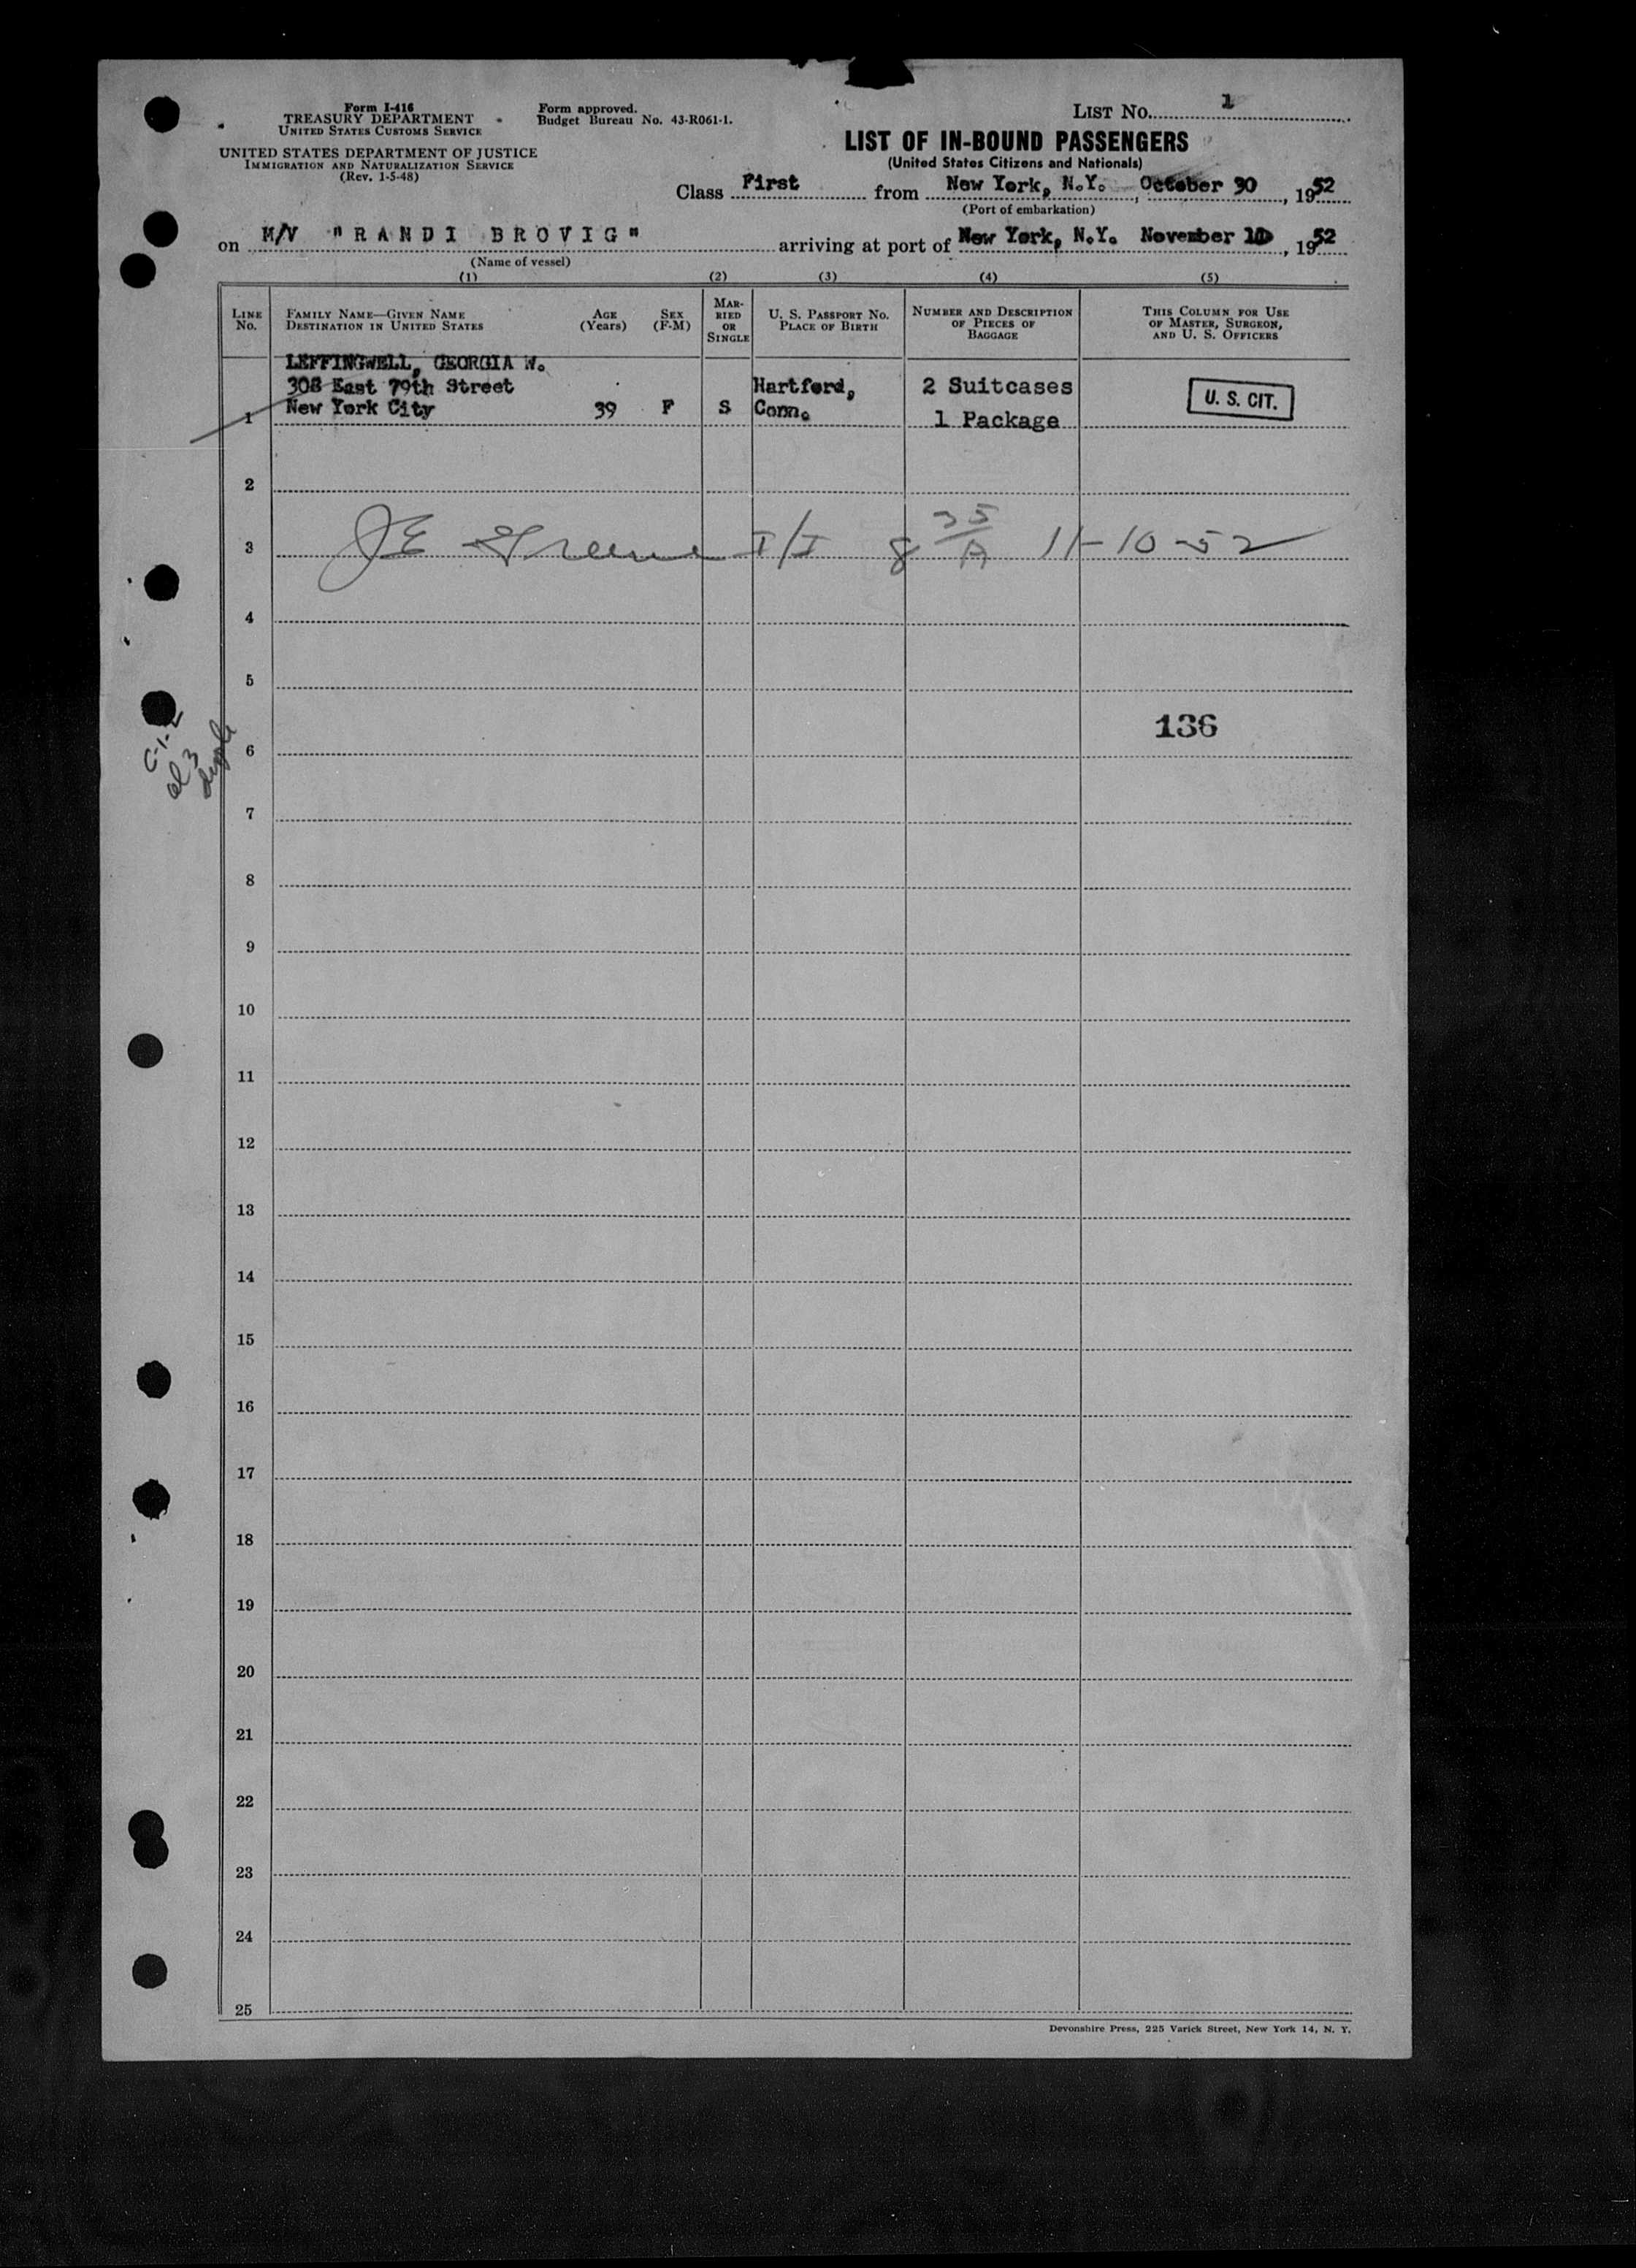 Form I-416
TREASURY DEPARTMENT
UNITED STATES CUSTOMS SERVICE
UNITED STATES DEPARTMENT OF JUSTICE
IMMIGRATION AND NATURALIZATION SERVICE
(Rev. 1-5-48)
Form approved.
Budget Bureau No. 43-R061-1.
LIST No. 1
LIST OF IN-BOUND PASSENGERS
(United States Citizens and Nationals)
Class First from New York, N.Y., October 30, 1952
(Port of embarkation)
on M/V "RANDI BROVIG" arriving at port of New York, N.Y. November 10, 1952
(Name of vessel)
(1) (2) (3) (4) (5)
LINE No.
FAMILY NAME—GIVEN NAME
DESTINATION IN UNITED STATES
AGE (Years)
SEX (F-M)
MARRIED OR SINGLE
U. S. PASSPORT NO.
PLACE OF BIRTH
NUMBER AND DESCRIPTION OF PIECES OF BAGGAGE
THIS COLUMN FOR USE OF MASTER, SURGEON, AND U. S. OFFICERS
LEFFINGWELL, GEORGIA W.
308 East 79th Street Hartford, 2 Suitcases U. S. CIT.
1 New York City 39 F S Conn. 1 Package
2
3 JE Greene I/I 8 35/A 11-10-52
4
5
136
6
7
8
9
10
11
12
13
14
15
16
17
18
19
20
21
22
23
24
25
Devonshire Press, 225 Varick Street, New York 14, N. Y.